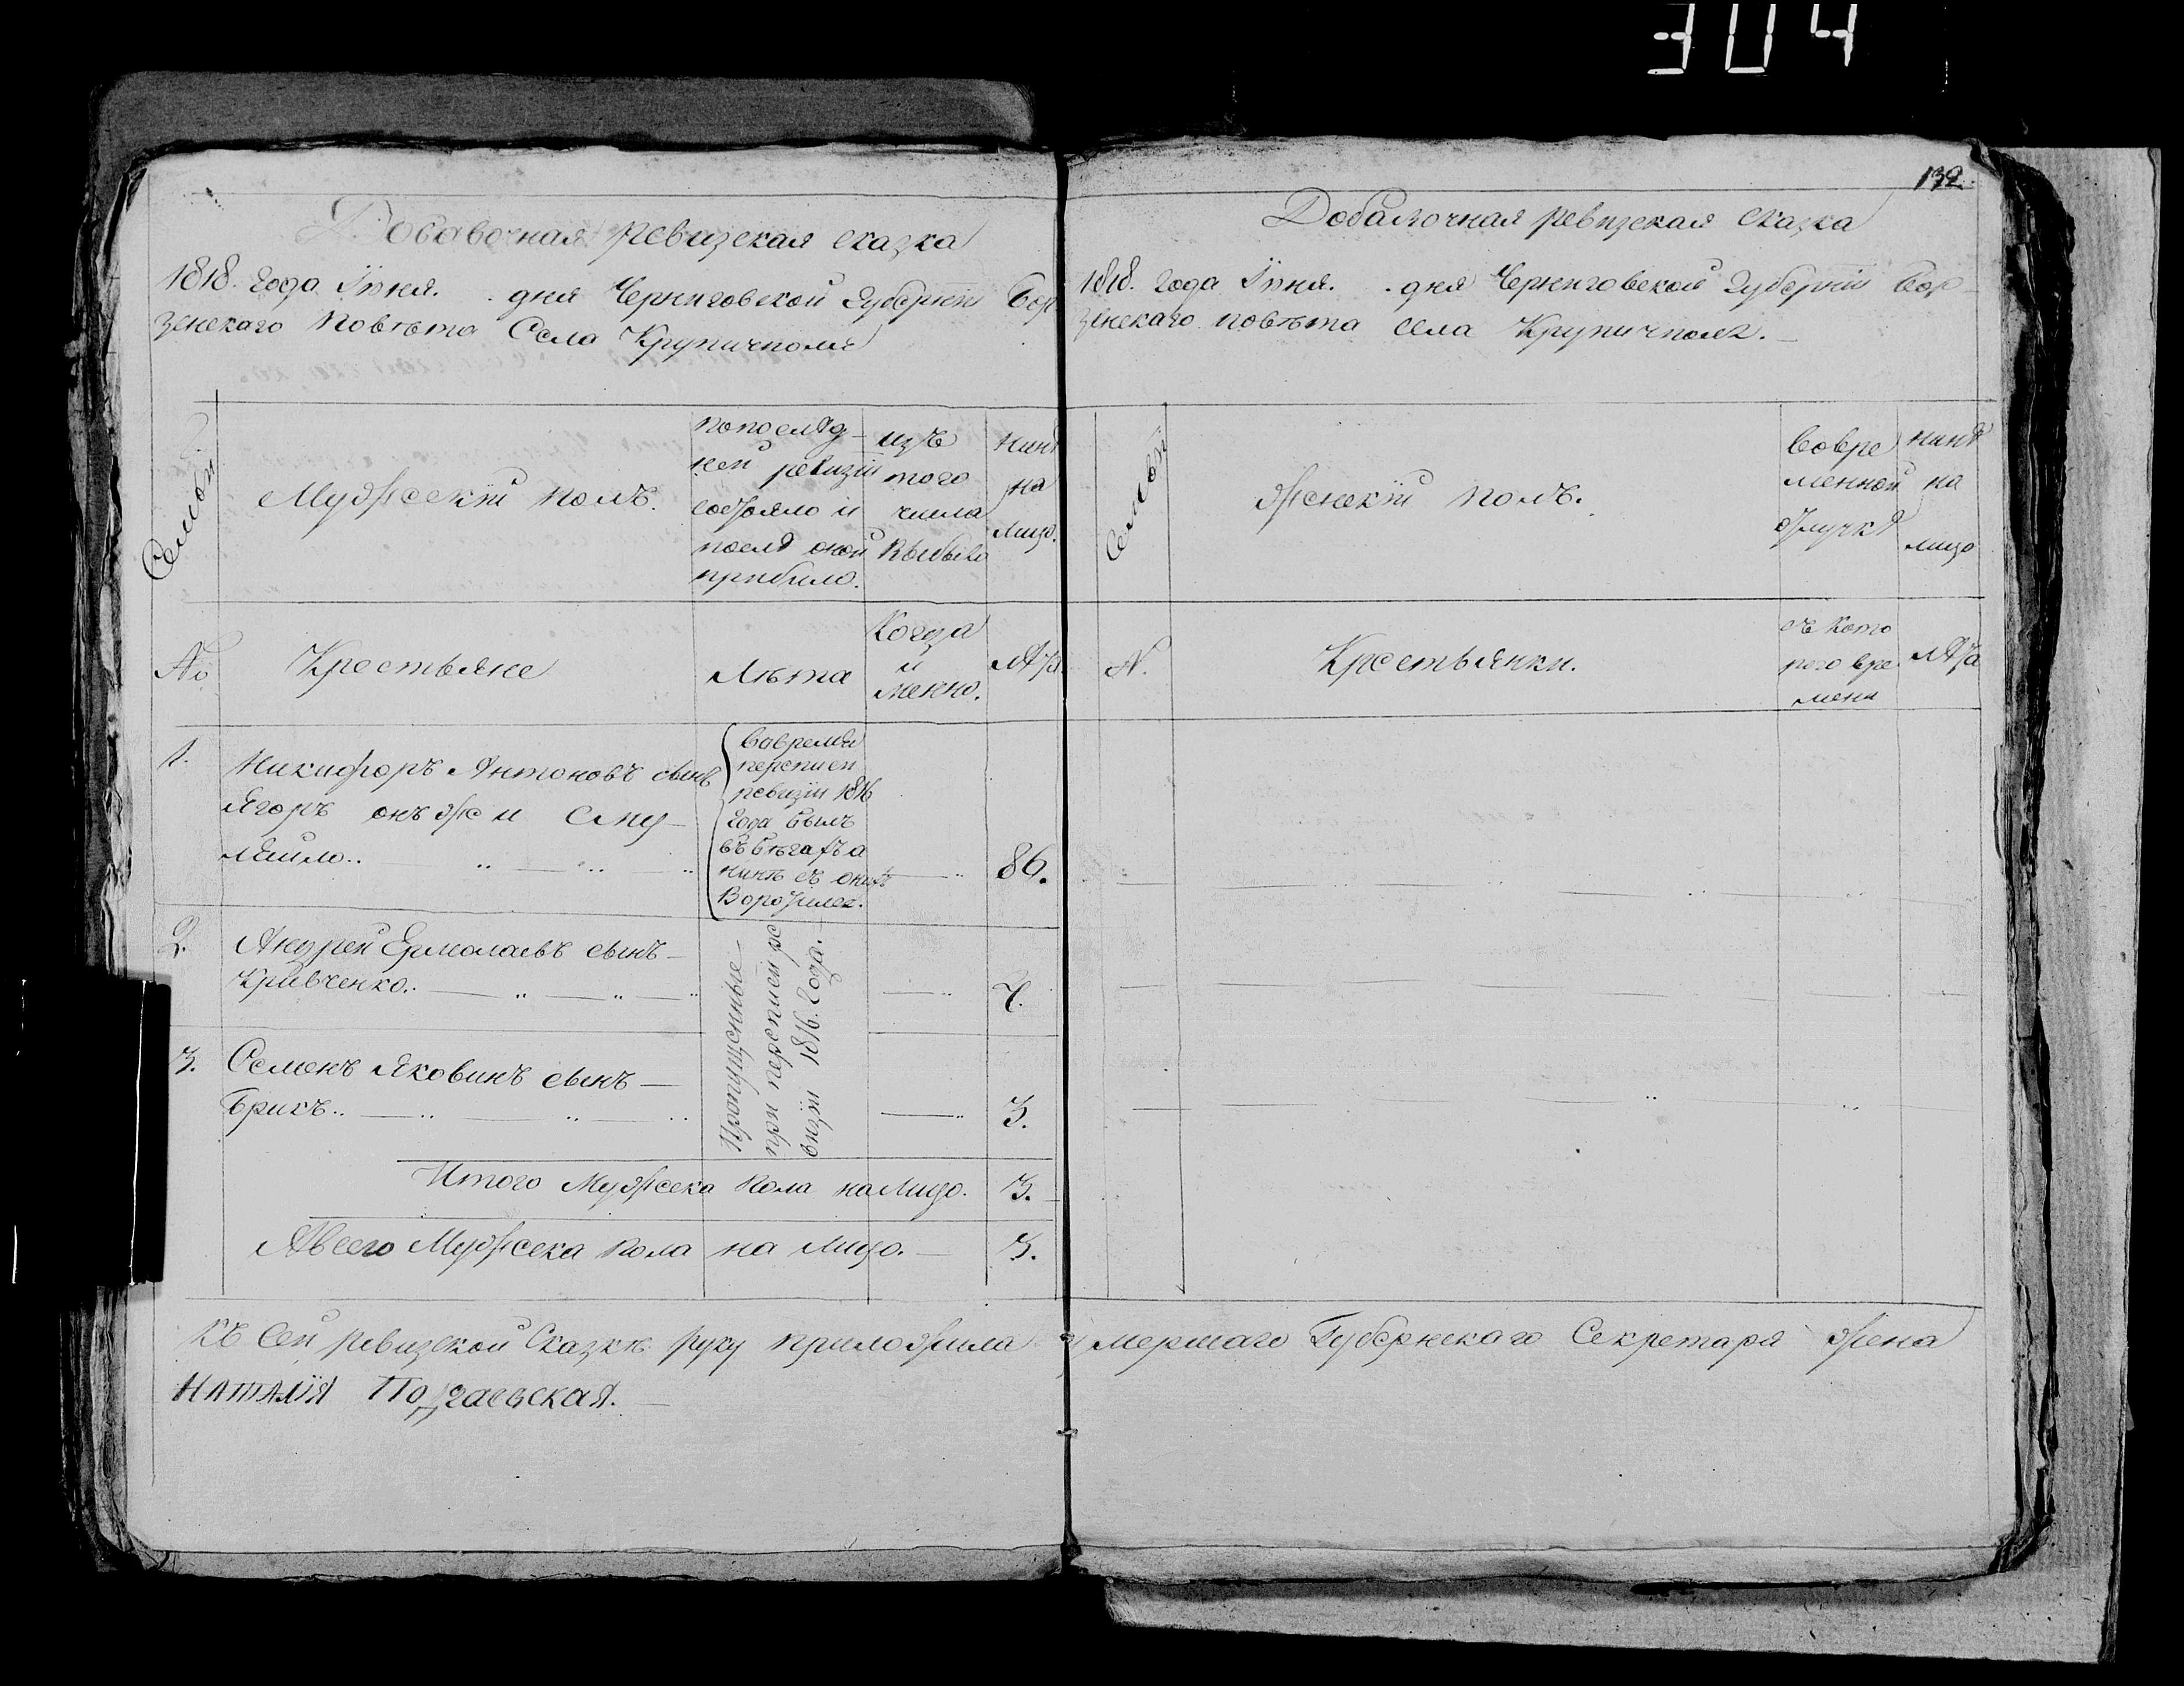 304
132
Добавочная ревизская сказка
1818. года Іюня. . дня Черниговской Губерніи Бор
зенскаго повѣта Села Крупичполя
Семьи
Мужескій полъ.
по послѣд-
ней ревизіи
состояло и
послѣ оной
прибило.
изъ
того
числа
выбыло
нинѣ
на
лицо.
№
Крестьяне
Лѣта
Когда
и
менно.
Лѣта
1.
Никифоръ Антоновъ сынъ
Ягоръ онъ же и Сму-
во время
переписи
ревизіи 1816
года былъ
въ бѣгахъ а
нинѣ съ онихъ
Воротился.
86.
2.
Андрей Ермолаевъ сынъ
Кривченко.
7.
Пропущенные
при переписи ре
визіи 1816. года.
3.
Семенъ Яковинъ сынъ
Брикъ..
3.
Итого Мужеска пола на лицо. 3.
А всего Мужеска пола на лицо. 3.
Добавочная ревизская сказка
1818. года Іюня. . дня Черниговской Губерніи Бор
зенскаго повѣта села Крупичполя.
Семьи
женскій полъ.
Во вре
менной
отлучкѣ
нинѣ
на
лицо
N.
Крестьянки.
съ кото
рого вре
мени
Лѣта
Къ сей ревизской Сказкѣ руку приложила умершаго Губернскаго Секретаря жена
Наталія Подгаевская.